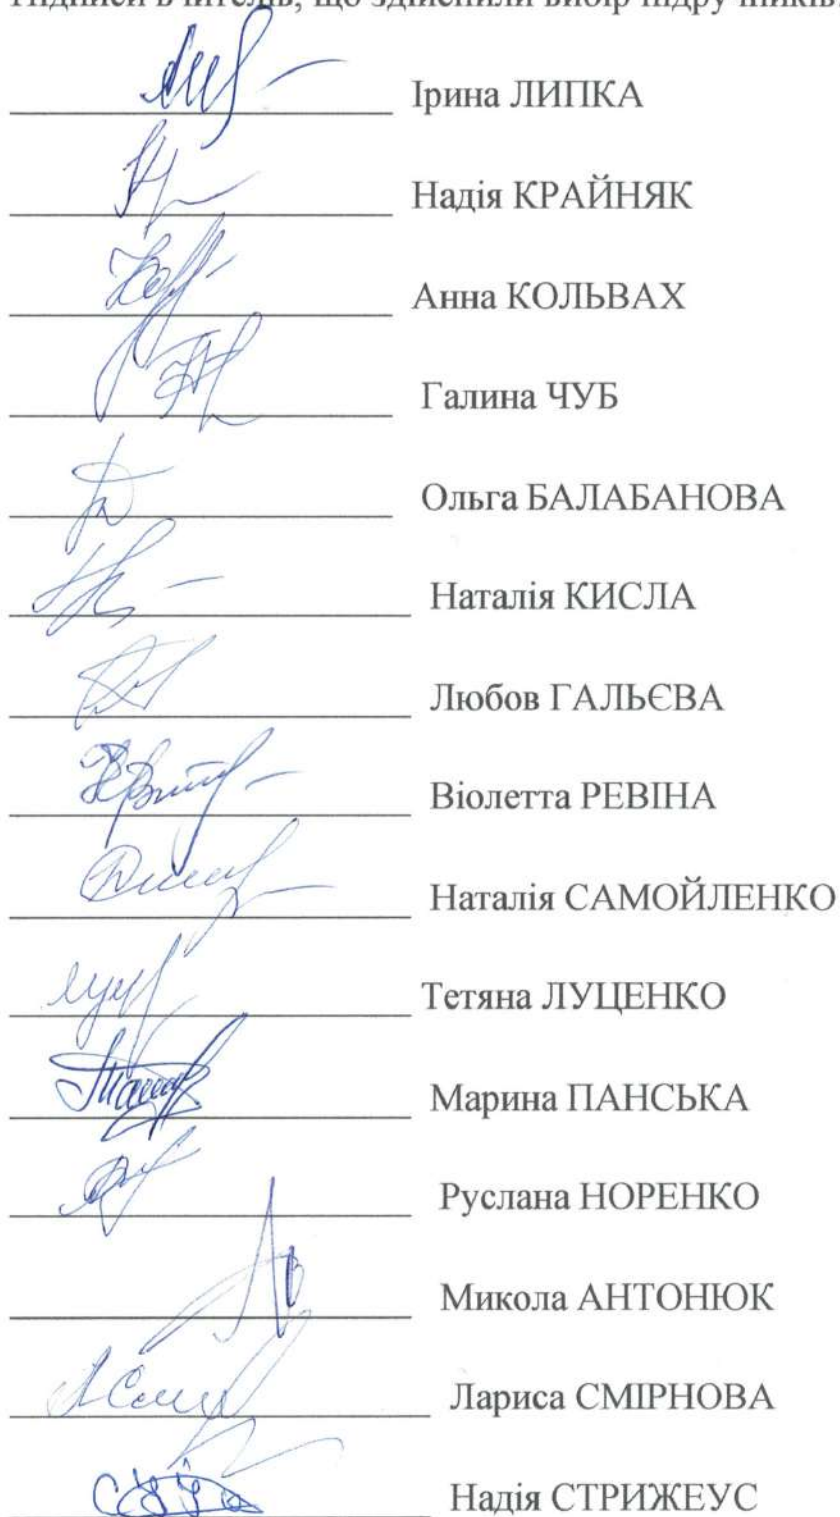 Підписи вчителів, що здійснили вибір підручників:
Ірина ЛИПКА
Надія КРАЙНЯК
Анна КОЛЬВАХ
Галина ЧУБ
Ольга БАЛАБАНОВА
Наталія КИСЛА
Любов ГАЛЬЄВА
Віолетта РЕВІНА
Наталія САМОЙЛЕНКО
Тетяна ЛУЦЕНКО
Марина ПАНСЬКА
Руслана НОРЕНКО
Микола АНТОНЮК
Лариса СМІРНОВА
Надія СТРИЖЕУС